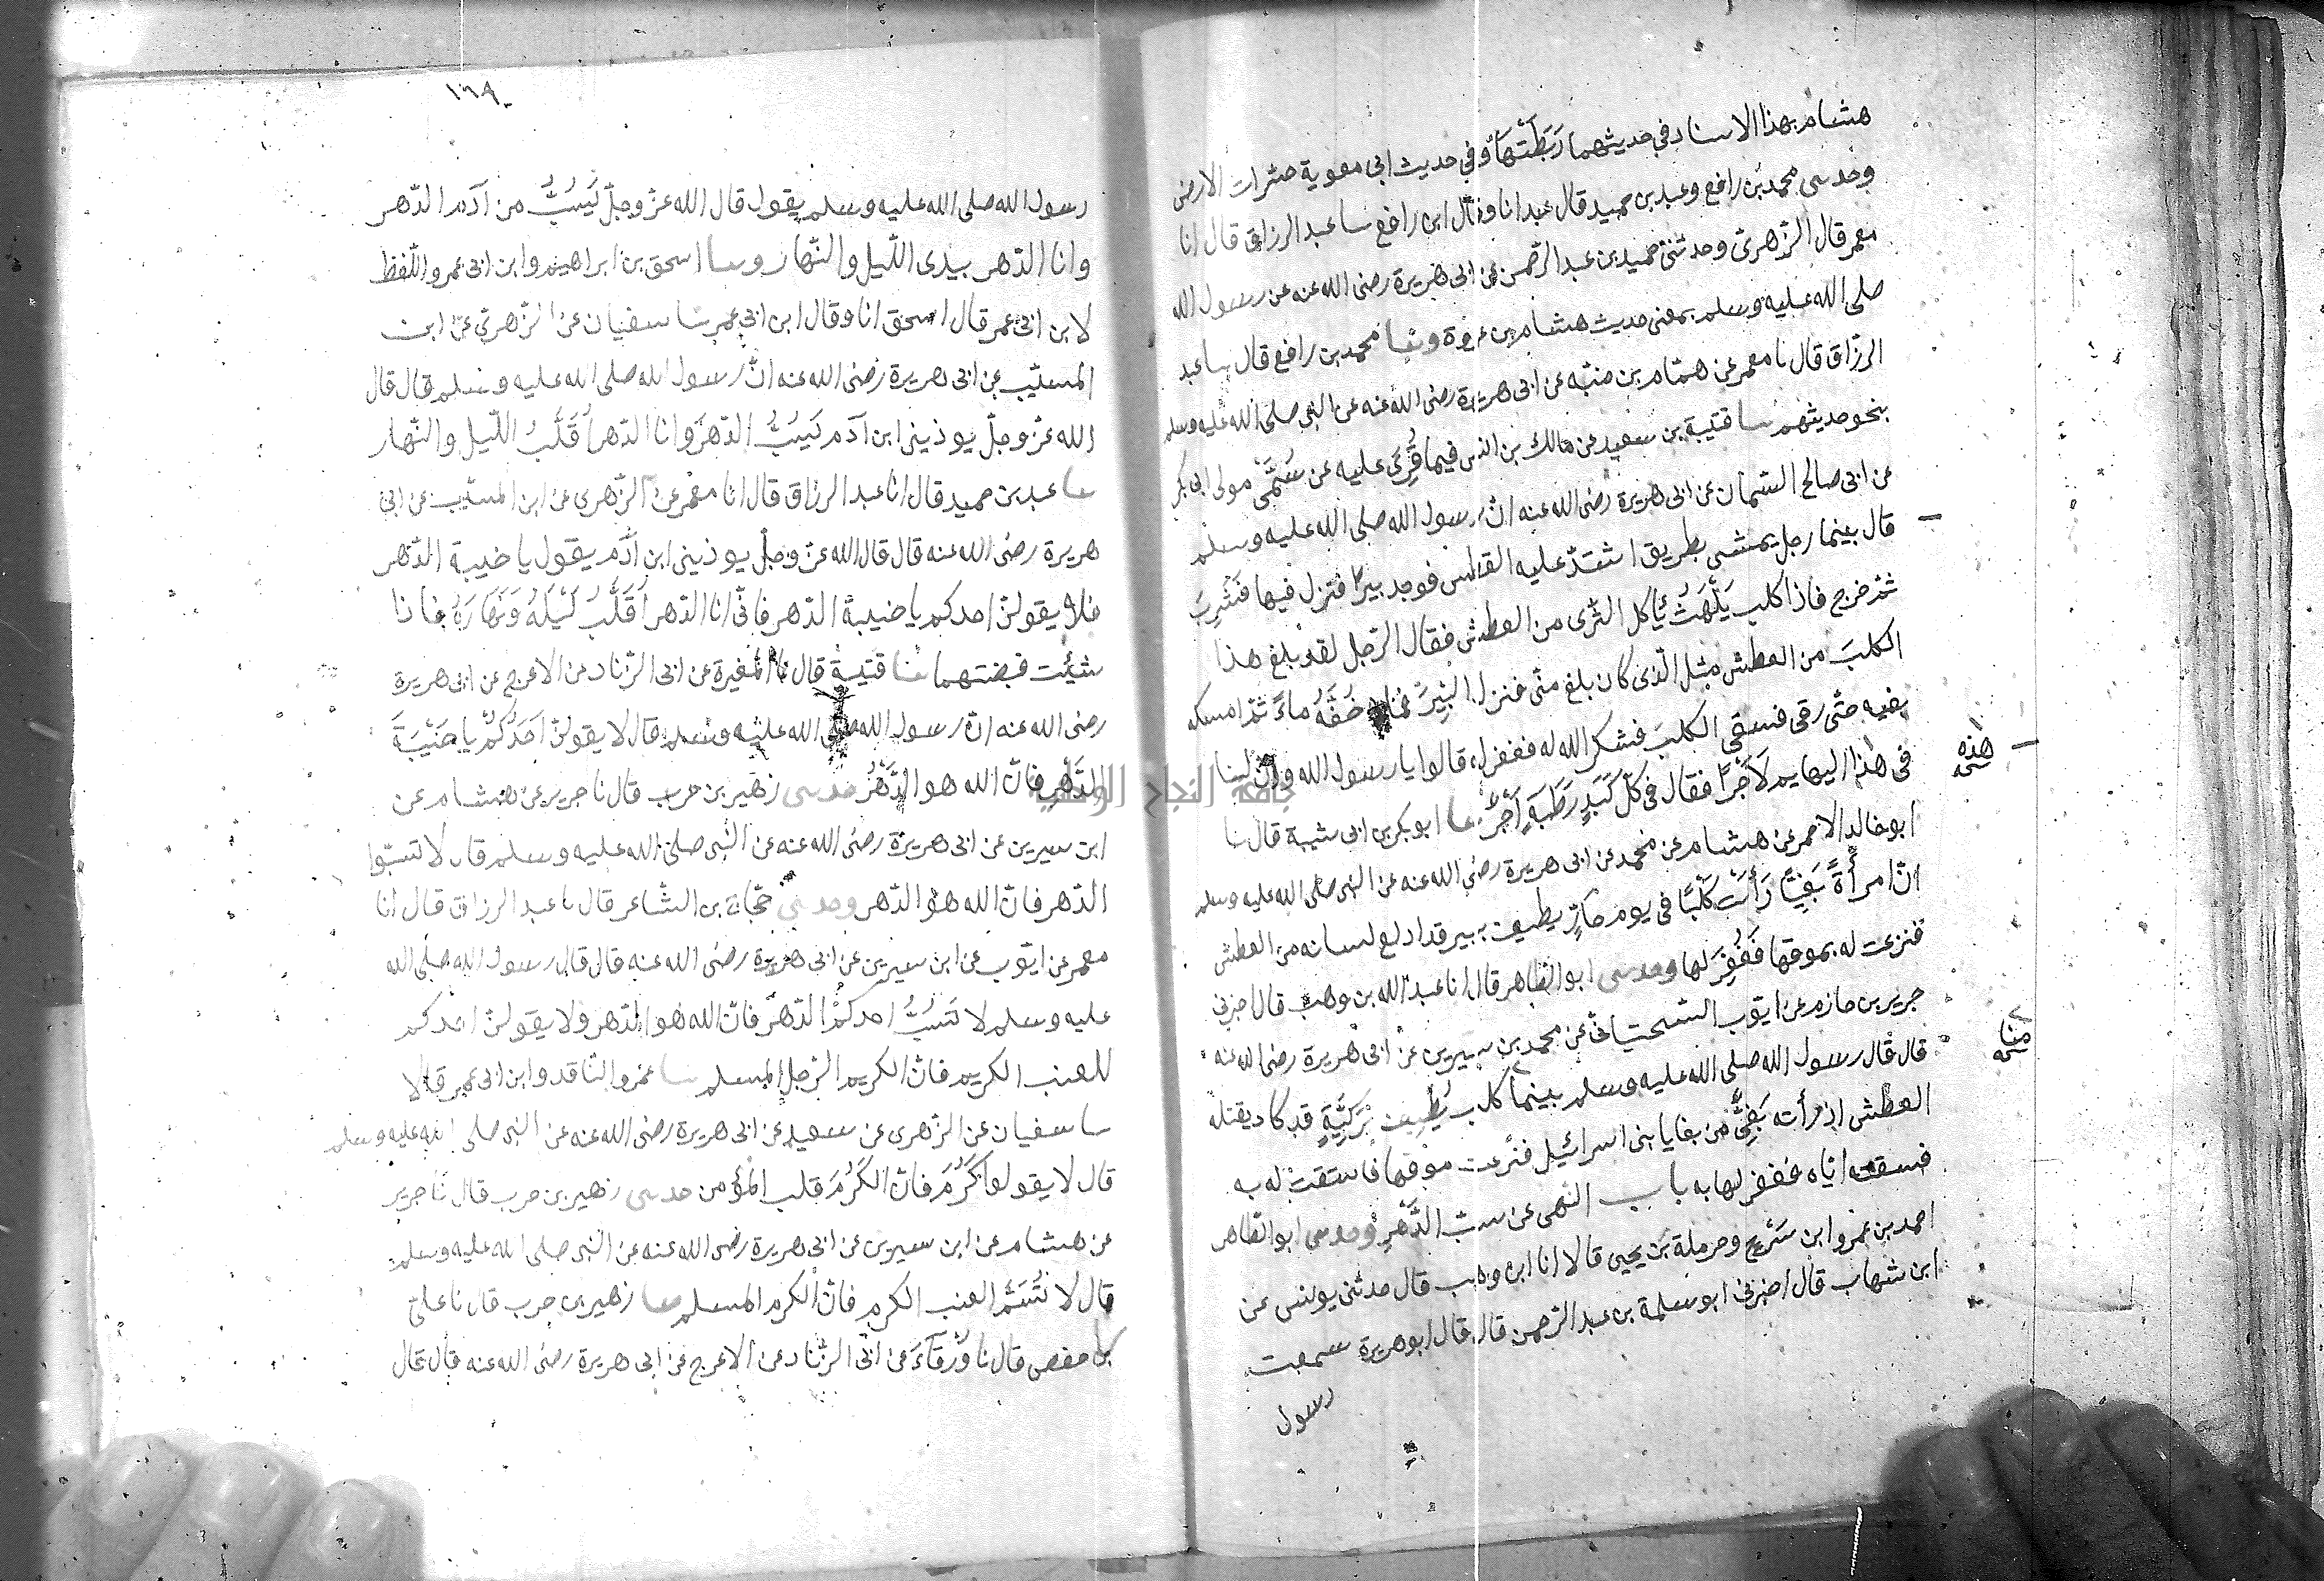 هشام بهذا الاسناد في حديثهما رَبَطَتْهَا وفي حديث ابى معوية حشرات الارض
وحدسى محمد بن رافع وعبد بن حميد قال عبد انا وقال ابن رافع سا عبد الرزاق قال انا
معمر قال الزهرى وحدثنى حميد بن عبد الرحمن عن ابى هريرة رضى الله عنه عن رسول الله
صلى الله عليه وسلم بمعنى حديث هشام بن عروة وسا محمد بن رافع قال سا عبد
الرزاق قال نا معمر عن همّام بن منبّه عن ابى هريرة رضى الله عنه عن النبى صلى الله عليه وسلم
بنحو حديثهم سا قتيبة بن سعيد عن مالك بن انس فيما قُرِئَ عليه عن سُمَّى مولى ابى بكر
عن ابى صالح السّمان عن ابى هريرة رضى الله عنه انّ رسول الله صلى الله عليه وسلم
قال بينما رجل يمشى بطريق اشتدّ عليه العطس فوجد بيرًا فنزل فيها فَشَرِبَ
ثمّ خرج فاذا كلب يَلْهَثُ يأكل الثّرى من العطش فقال الرّجل لقد بلغ هذا
الكلبَ من العطش مثل الّذى كان بلغ منّى فنزل البِيرَ فملأ خُفَّهُ ماءً ثمّ امسكه
بفيه حتّى رقى فسقى الكلبَ فشكر الله له فغفر له قالوا يا رسول الله وانّ لينا
فى هذا البهايم لَاَجْرًا فقال فى كلّ كَبَدٍ رَطْبَةٍ اَجْرٌ سا ابو بكر بن ابى شيبة قال نا
هذه
ابو خالد الاحمر عن هشام عن محمد عن ابى هريرة رضى الله عنه عن النبى صلى الله عليه وسلم
انّ امرأةً بَغِيًّا رَأَتْ كَلْبًا فى يوم حارٍّ يطيف ببير قد ادلع لسانه من العطش
فنزعت له بموقها فَغُفِرَ لها وحدسى ابو الطاهر قال انا عبد الله بن وهب قال اخبرنى
جرير بن حازم عن ايّوب السّختيانىّ عن محمد بن سيرين عن ابى هريرة رضى الله عنه
قال قال رسول الله صلى الله عليه وسلم بينما كلب يُطِيف بِرَكِيَّةٍ قد كاد يقتله
العطش اذ رأته بَغِىٌّ من بغايا بنى اسرائيل فنزعت موقها فاستقت له به
فسقته اياه فغفر لها به باب النهى عن سبّ الدَّهْرِ وحدسى ابو الطاهر
احمد بن عمرو ابن سَرْحٍ وحرملة بن يحيى قالا انا ابن وهب قال حدثنى يونس عن
ابن شهاب قال اخبرنى ابو سلمة بن عبد الرّحمن قال قال ابو هريرة سمعت
رسول
١٦٩
رسول الله صلى الله عليه وسلم يقول قال الله عزّ وجلّ يَسُبُّ من آدم الدّهر
وانا الدّهر بيدى اللّيل والنّهار وسا اسحق بن ابراهيم وابن ابى عمر واللّفظ
لابن ابى عمر قال اسحق انا وقال ابن ابى عمر سا سفيان عن الزّهرىّ عن ابن
المسيّب عن ابى هريرة رضى الله عنه انّ رسول الله صلى الله عليه وسلم قال قال
الله عزّ وجلّ يوذينى ابن آدم يَسُبُّ الدّهرَ وانا الدّهر اُقَلّبُ اللّيل والنّهار
سا عبد بن حميد قال انا عبد الرزاق قال انا معمر عن الزّهرى عن ابن المسيّب عن ابى
هريرة رضى الله عنه قال قال الله عزّ وجلّ يوذينى ابن آدم يقول يا خيبة الدّهر
فلا يقولنّ احدكم يا خيبة الدّهر فانّى انا الدّهر اُقَلّبُ لَيْلَهُ وَنَهَارَهُ فاذا
شئت قبضتهما سا قتيبة قال نا المغيرة عن ابى الزّناد عن الاعرج عن ابى هريرة
رضى الله عنه انّ رسول الله صلى الله عليه وسلم قال لا يقولنّ اَحَدُكُمْ يا خَيْبَةَ
الدَّهْرِ فانّ الله هو الدَّهْرُ حدسى زهير بن حرب قال نا جرير عن هشام عن
ابن سيرين عن ابى هريرة رضى الله عنه عن النّبى صلى الله عليه وسلم قال لا تسبّوا
الدّهر فانّ الله هو الدّهر وحدسى حجّاج بن الشّاعر قال نا عبد الرزاق قال انا
معمر عن ايّوب عن ابن سيرين عن ابى هريرة رضى الله عنه قال قال رسول الله صلى الله
عليه وسلم لا يَسُبُّ احدكُمْ الدّهرَ فانّ الله هو الدّهر ولا يقولنّ احدكم
للعنب الكريم فانّ الكريم الرّجل المسلم سا عمرو النّاقد وابن ابى عمر قالا
سا سفيان عن الزّهرى عن سعيد عن ابى هريرة رضى الله عنه عن النبى صلى الله عليه وسلم
قال لا يقولوا كَرْمَ فانّ الكَرْمَ قلب المؤمن حدسى زهير بن حرب قال نا جرير
عن هشام عن ابن سيرين عن ابى هريرة رضى الله عنه عن النّبى صلى الله عليه وسلم
قال لا تُسَمّوا العنب الكرم فانّ الكرم المسلم سا زهير بن حرب قال نا علىّ
بن حفص قال نا وَرْقَاءَ عن ابى الزّناد عن الاعرج عن ابى هريرة رضى الله عنه قال قال
جامعة النجاح الوطنية